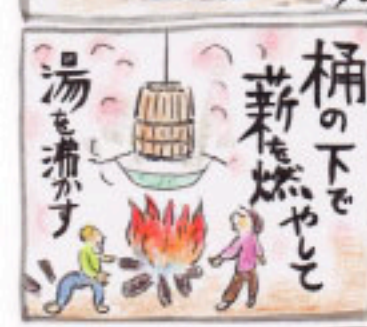 桶の下で
薪を燃やして
湯を沸かす